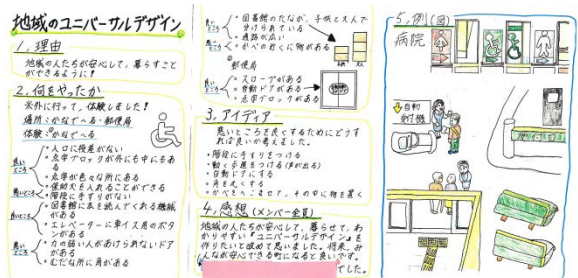 地域のユニバーサルデザイン
1.理由
地域の人たちが安心して、暮らすこと
ができるように!
2.何をやったか
校外に行って、体験しました!
場所:かなでーる・郵便局
体験:かなでーる
良いところ
・入口に段差がない
・点字ブロックが外にも中にもある
・点字が色々な所にある
・補助犬も入れることができる
悪いところ
・階段に手すりがない
良いところ
・図書館に本を読んでくれる機械
がある
・エレベーターに車イス用のボタン
がある
悪いところ
・力の弱い人があけられないドア
がある
・むだな所に角がある
良いところ
・図書館のたなが、子供と大人で
分けられている
・通路が広い
・かべの近くに物がある
郵便局
良いところ
・スロープがある
・自動ドアがある
・点字ブロックがある
3.アイディア
悪いところを良くするためにどうすれ
ば良いか考えました。
・階段に手すりをつける
・動く歩道をつける(声が出る)
・自動ドアにする
・角を丸くする
・かべをへこませて、その中に物を置く
4.感想(メンバー全員)
地域の人たちが安心して、暮らせて、わ
かりやすい『ユニバーサルデザイン』を
作りたいと改めて思いました。将来、み
んなが安心できる町になると良いです。
でした。
5.例(図)
病院
自動